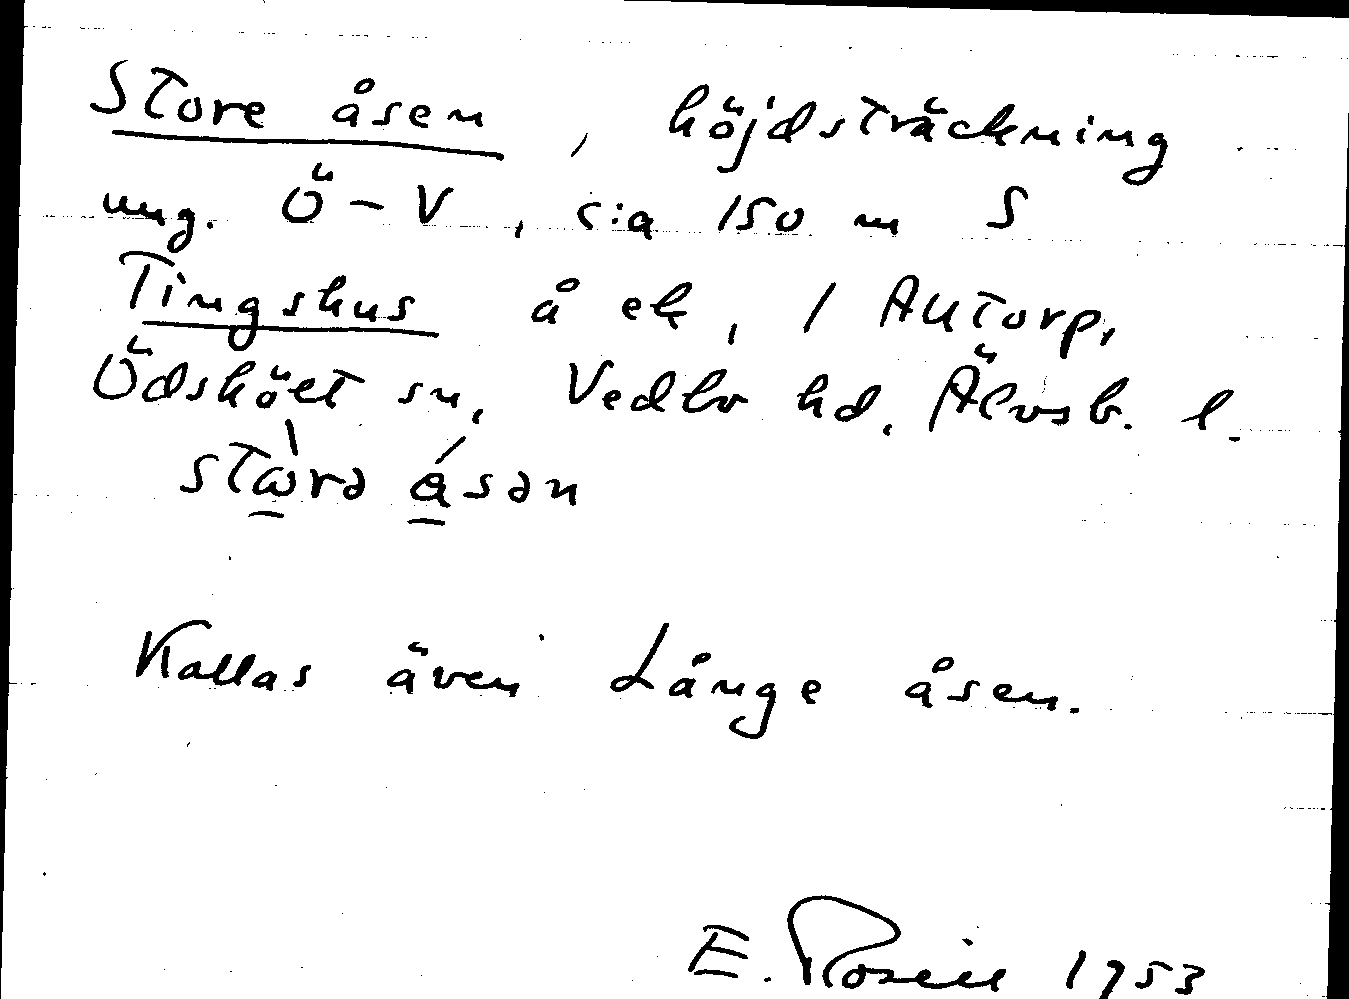 Store åsen, höjdsträckning
ung. Ö-V, c:a 150 m S
Tingshus å ek, 1 Autorp,
Ödsköet sn, Vedbo hd, Älvsb. l.
Kallas även Långe åsen.
E. Rosell 1953